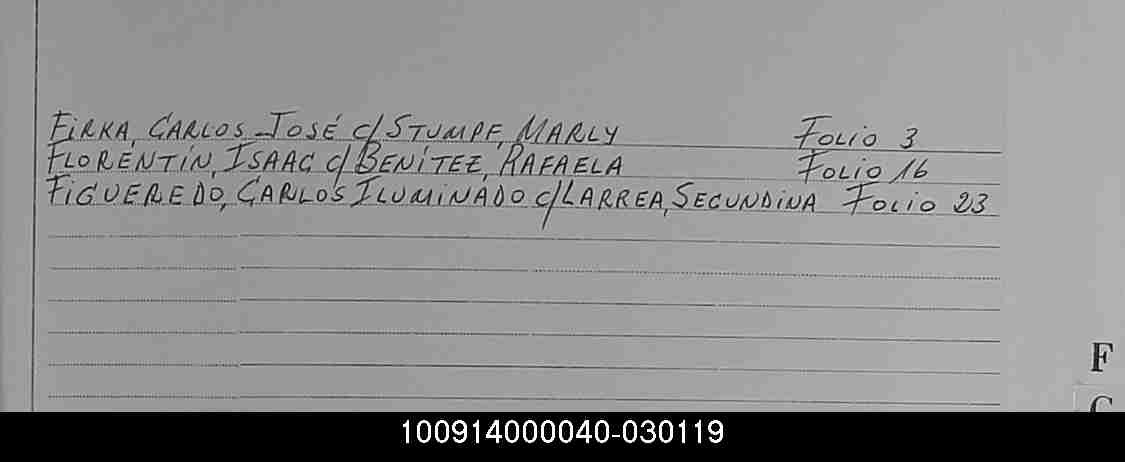 FIRKA, CARLOS JOSÉ c/ STUMPF, MARLY Folio 3
FLORENTÍN, ISAAC c/ BENÍTEZ, RAFAELA Folio 16
FIGUEREDO, CARLOS ILUMINADO c/ LARREA, SECUNDINA Folio 23
F
G
100914000040-030119